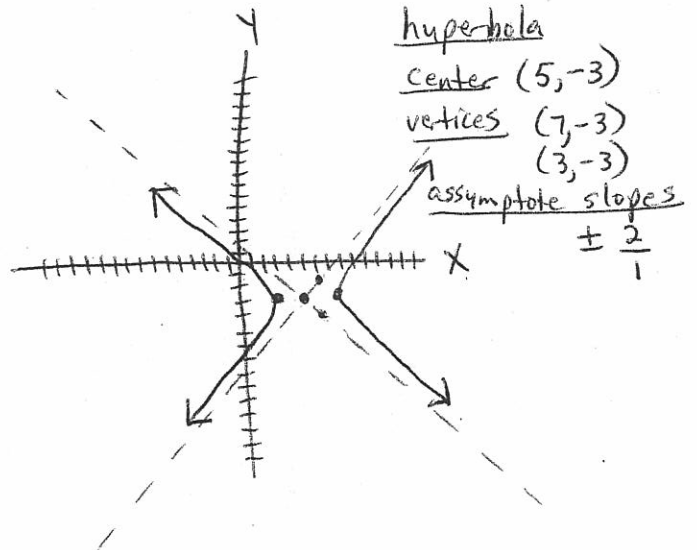 Y
hyperbola
center (5,-3)
vertices (7,-3)
(3,-3)
assymptote slopes
± 2/1
X